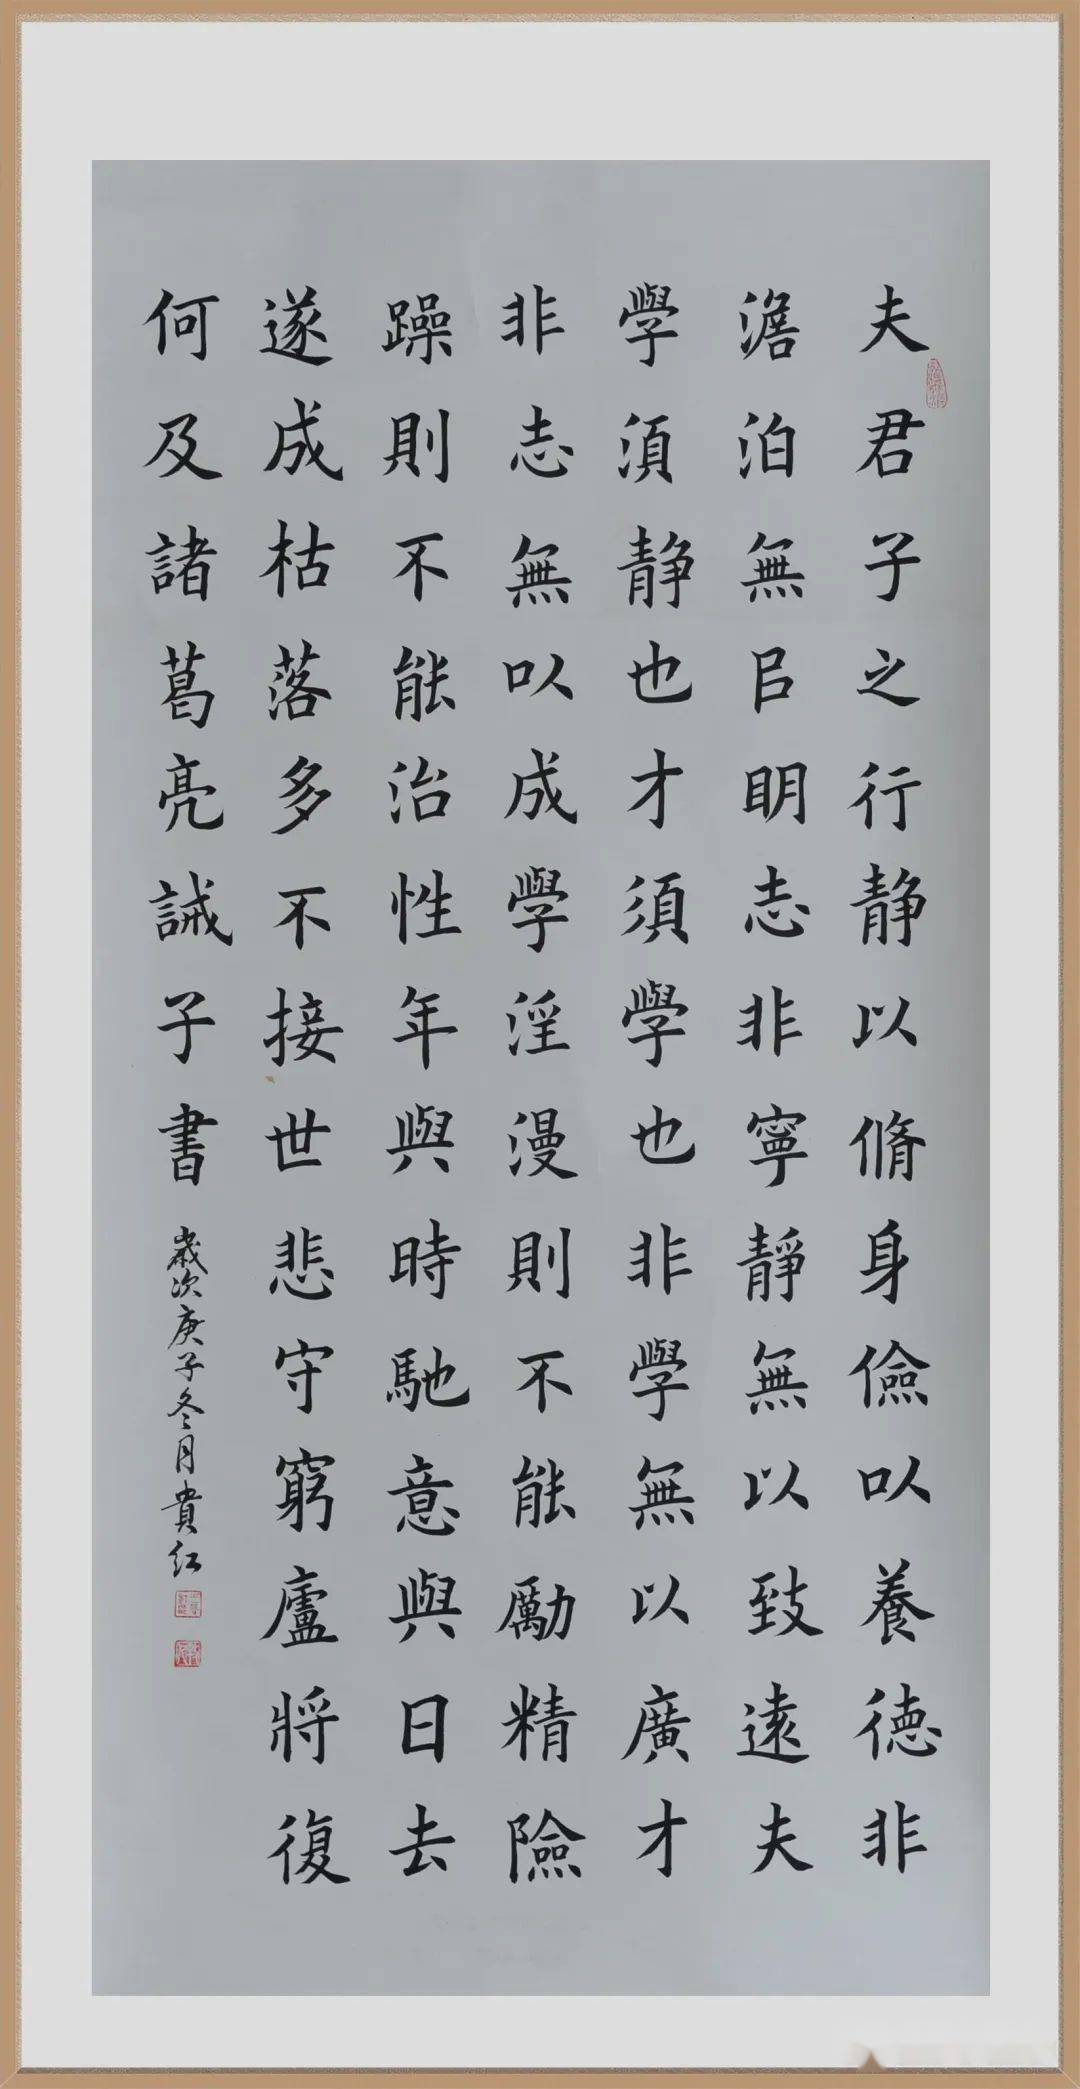 夫君子之行静以脩身儉以養德非
澹泊無㠯明志非寧靜無以致遠夫
學須静也才須學也非學無以廣才
非志無以成學淫漫則不能勵精險
躁則不能治性年與時馳意與日去
遂成枯落多不接世悲守窮廬將復
何及諸葛亮誡子書
歲次庚子冬月貴紅